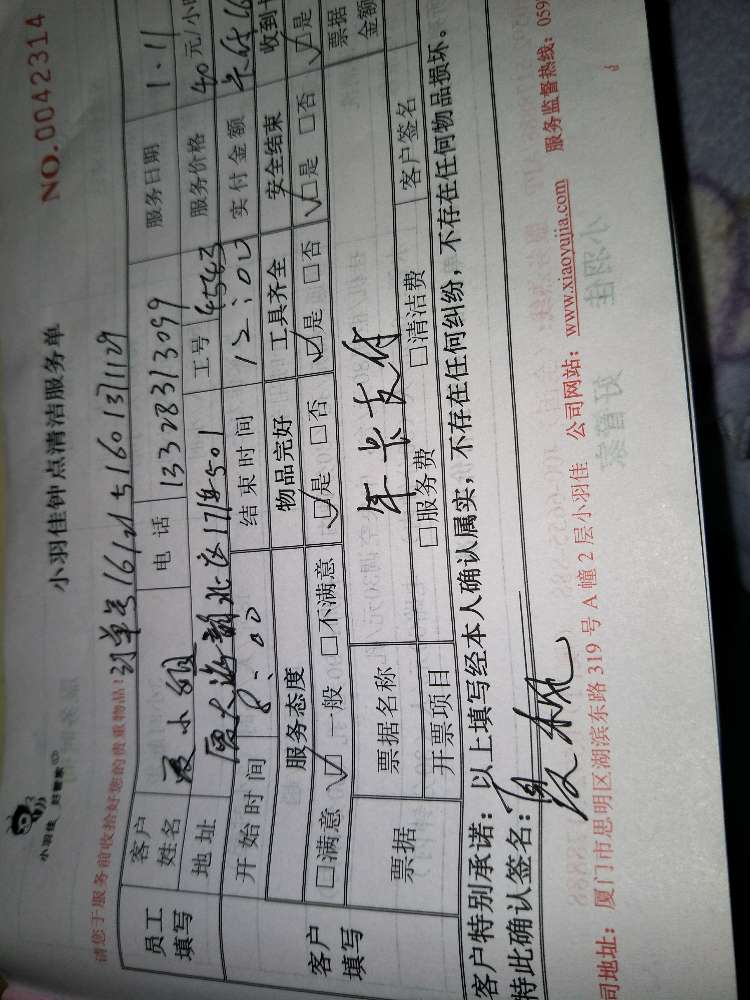 小羽佳 好管家
小羽佳钟点清洁服务单
NO.0042314
请您于服务前收拾好您的贵重物品!
订单号161215160137129
员工填写 客户姓名 小姐 电话 13328313099 服务日期 1.11
地址 厦大海韵北区17#501 工号 4543 服务价格 40元/小时
开始时间 8:00 结束时间 12:00 实付金额
客户填写 服务态度 物品完好 工具齐全 安全结束 收到
□满意 □一般 □不满意 □是 □否 □是 □否 □是 □否 □是
票据 票据名称 年卡支付 票据金额
开票项目 □服务费 □清洁费 客户签名
客户特别承诺:以上填写经本人确认属实,不存在任何纠纷,不存在任何物品损坏。
特此确认签名:
司地址:厦门市思明区湖滨东路319号A幢2层小羽佳 公司网站:www.xiaoyujia.com 服务监督热线:059